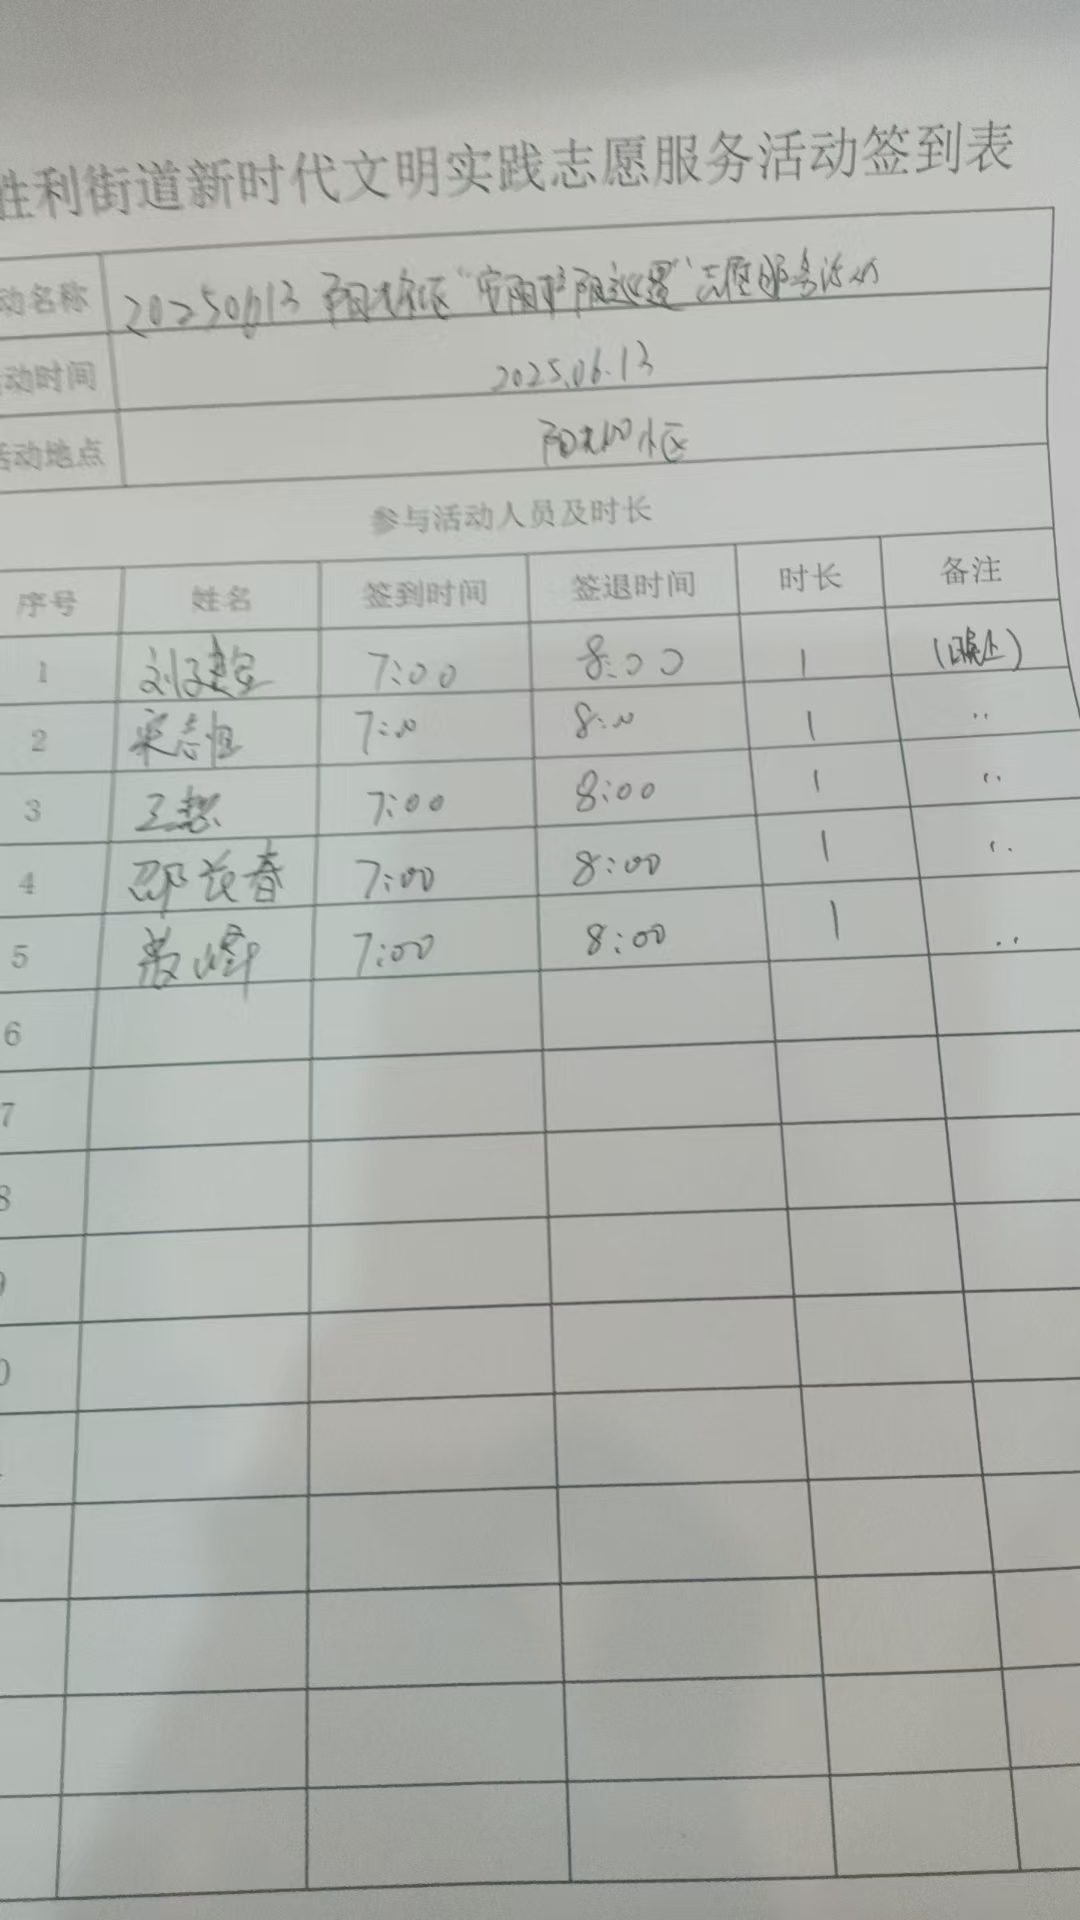 胜利街道新时代文明实践志愿服务活动签到表
动名称 20250613 阳光社区“安阳护阳巡逻”志愿服务活动
动时间 2025.06.13
活动地点 阳光100小区
参与活动人员及时长
序号 姓名 签到时间 签退时间 时长 备注
1 刘建宝 7:00 8:00 1 (晚上)
2 宋志恒 7:00 8:00 1 ..
3 王想 7:00 8:00 1 ..
4 邵长春 7:00 8:00 1 ..
5 峰 7:00 8:00 1 ..
6
7
8
9
0